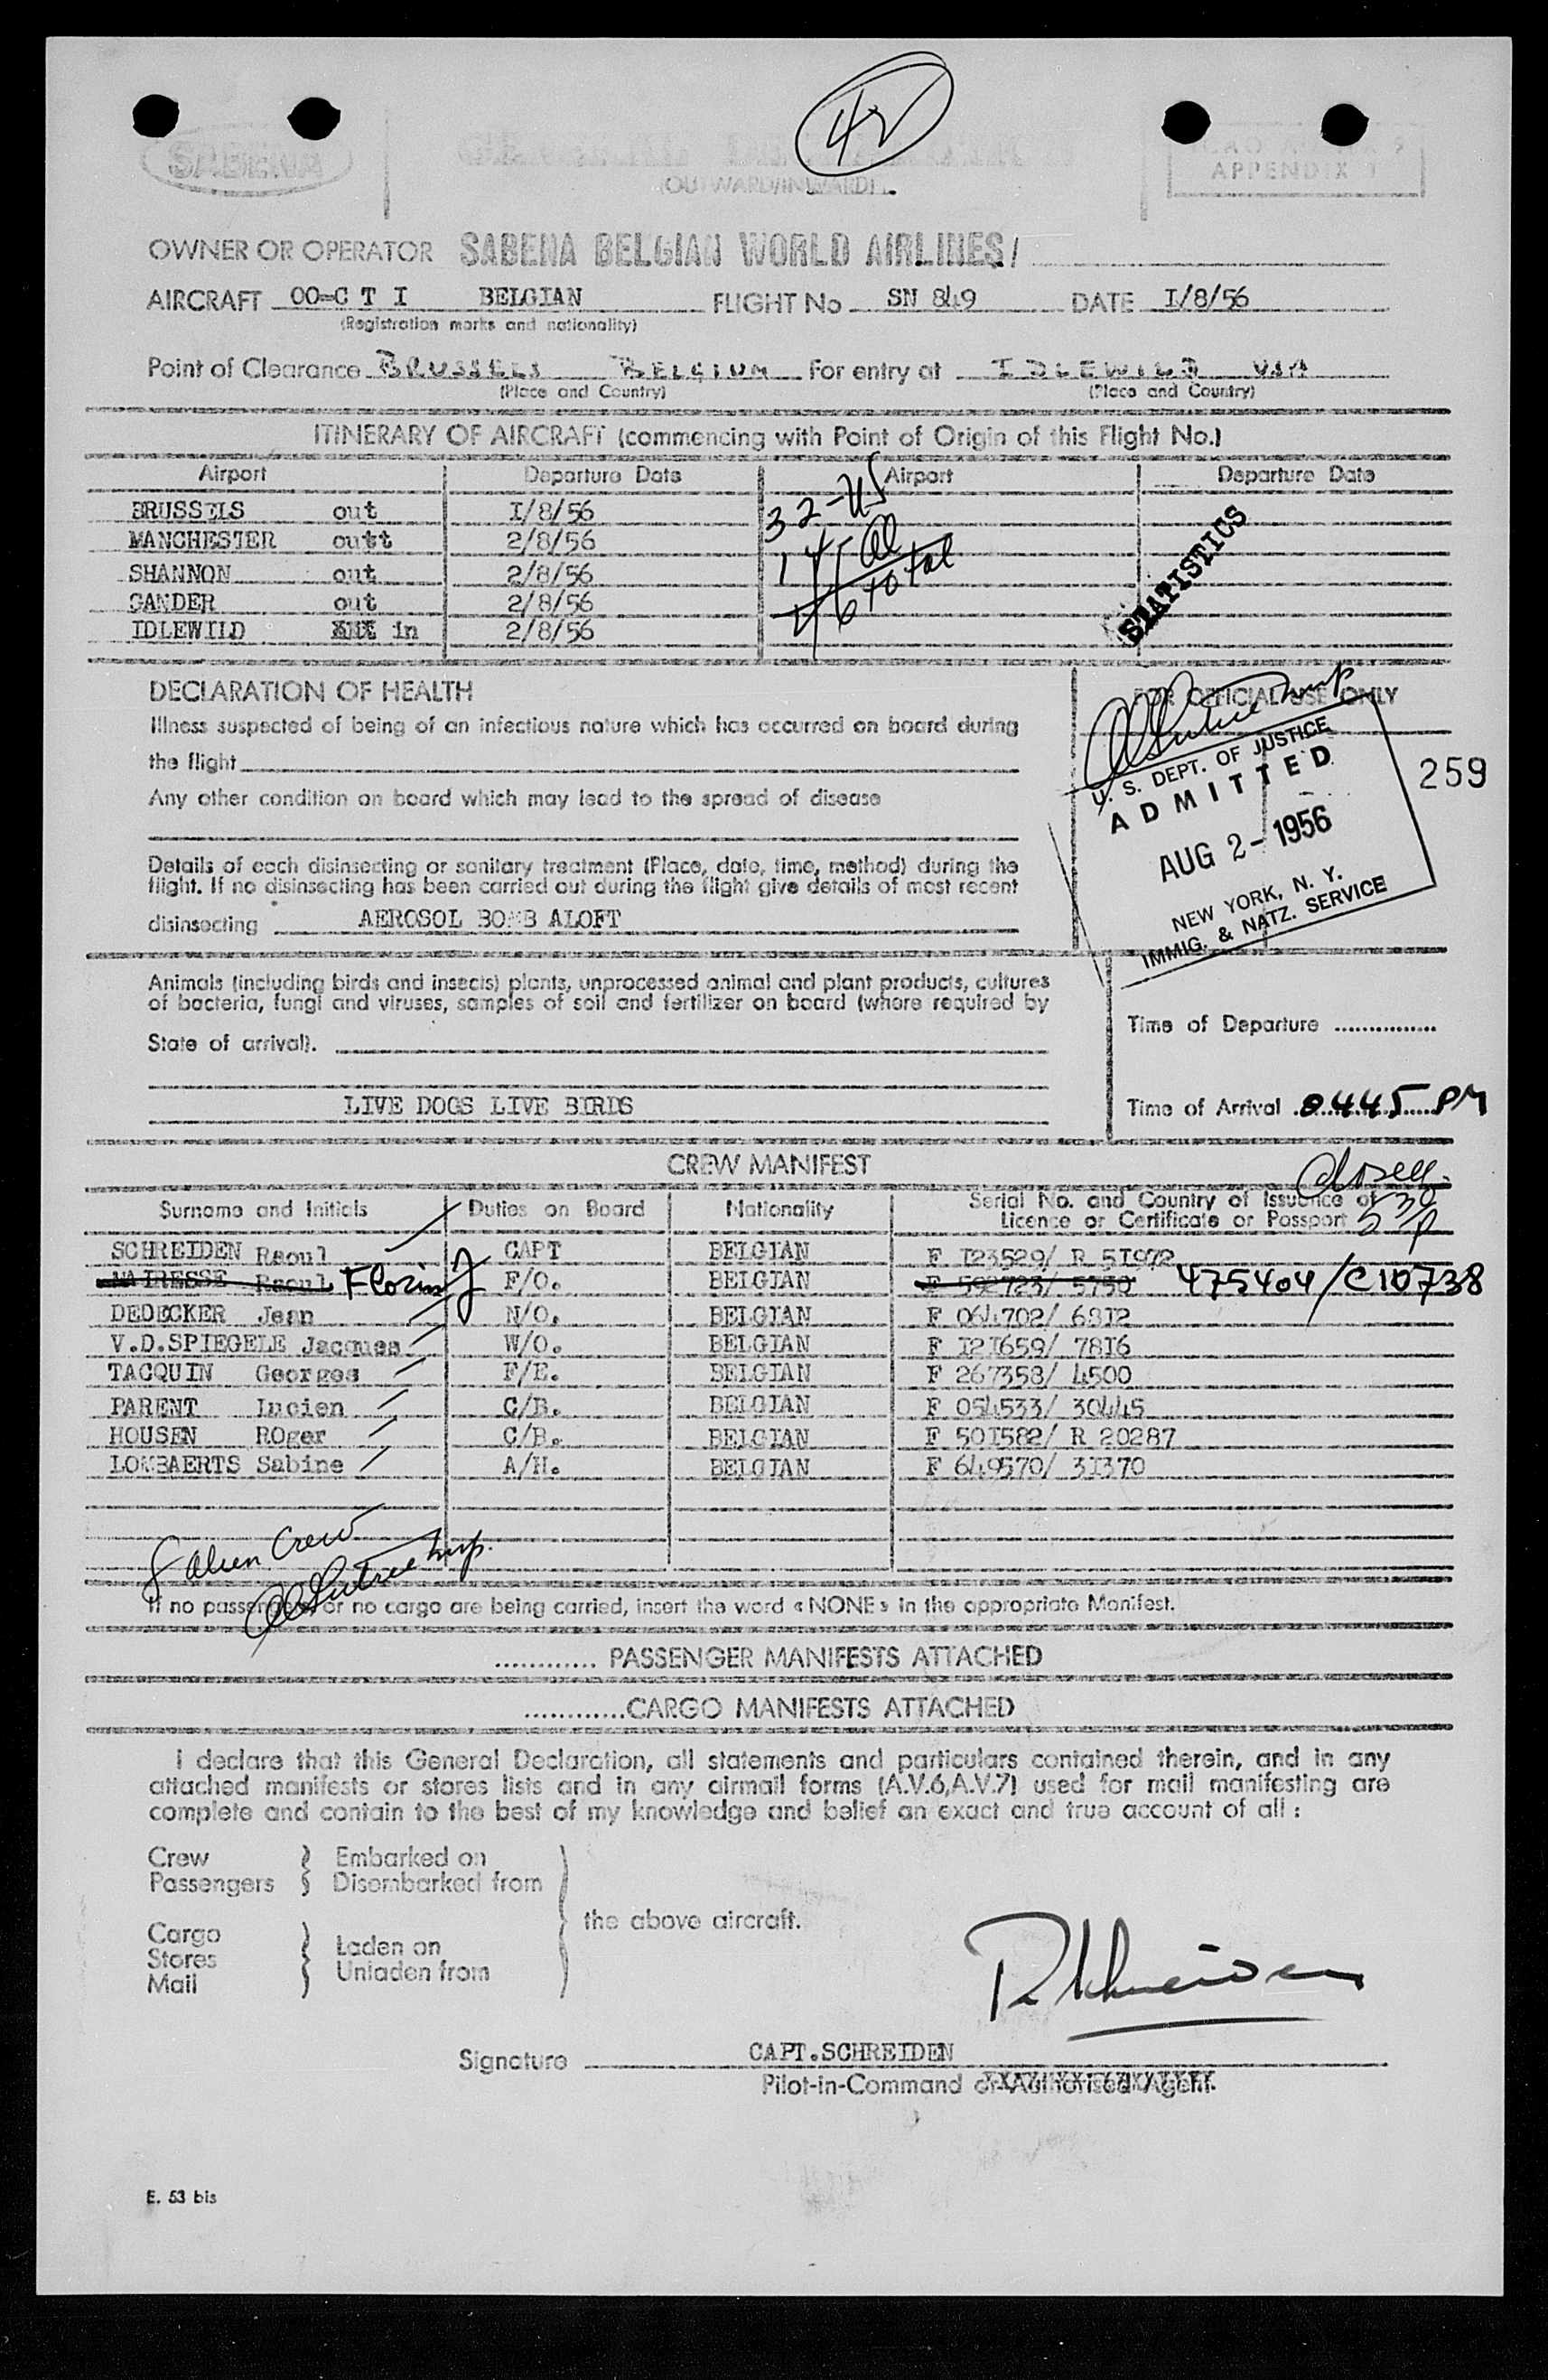 42
SABENA
(OUTWARD/INWARD)
APPENDIX 1
OWNER OR OPERATOR SABENA BELGIAN WORLD AIRLINES/
AIRCRAFT OO-C T I BELGIAN FLIGHT No SN 849 DATE I/8/56
(Registration marks and nationality)
Point of Clearance BRUSSELS BELGIUM For entry at IDLEWILD USA
(Place and Country) (Place and Country)
ITINERARY OF AIRCRAFT (commencing with Point of Origin of this Flight No.)
Airport Departure Date Airport Departure Date
BRUSSELS out I/8/56
MANCHESTER outt 2/8/56
SHANNON out 2/8/56
GANDER out 2/8/56
IDLEWILD in 2/8/56
32-US
14-Al
46 total
STATISTICS
DECLARATION OF HEALTH
Illness suspected of being of an infectious nature which has occurred on board during
the flight
Any other condition on board which may lead to the spread of disease
Details of each disinsecting or sanitary treatment (Place, date, time, method) during the
flight. If no disinsecting has been carried out during the flight give details of most recent
disinsecting AEROSOL BOMB ALOFT
FOR OFFICIAL USE ONLY
U. S. DEPT. OF JUSTICE
ADMITTED
AUG 2 - 1956
NEW YORK, N. Y.
IMMIG. & NATZ. SERVICE
259
Animals (including birds and insects) plants, unprocessed animal and plant products, cultures
of bacteria, fungi and viruses, samples of soil and fertilizer on board (where required by
State of arrival).
LIVE DOGS LIVE BIRDS
Time of Departure ...............
Time of Arrival 0445 PM
CREW MANIFEST
Surname and Initials Duties on Board Nationality Serial No. and Country of Issuance of
Licence or Certificate or Passport
530 P
SCHREIDEN Raoul CAPT BELGIAN F I23529/ R 5I972
MAIRESSE Raoul Florin J F/O. BELGIAN F 592723/ 5750 475404/C10738
DEDECKER Jean N/O. BELGIAN F 064702/ 68I2
V.D.SPIEGELE Jacques W/O. BELGIAN F I2I659/ 78I6
TACQUIN Georges F/E. BELGIAN F 267358/ 4500
PARENT Lucien C/B. BELGIAN F 054533/ 30445
HOUSEN ROger C/B. BELGIAN F 50I582/ R 20287
LOMBAERTS Sabine A/H. BELGIAN F 649570/ 3I370
8 alien Crew
If no passengers or no cargo are being carried, insert the word «NONE» in the appropriate Manifest.
............ PASSENGER MANIFESTS ATTACHED
............CARGO MANIFESTS ATTACHED
I declare that this General Declaration, all statements and particulars contained therein, and in any
attached manifests or stores lists and in any airmail forms (A.V.6,A.V.7) used for mail manifesting are
complete and contain to the best of my knowledge and belief an exact and true account of all :
Crew Embarked on
Passengers Disembarked from
the above aircraft.
Cargo
Stores Laden on
Mail Unladen from
R Schreiden
Signature CAPT.SCHREIDEN
Pilot-in-Command or Authorised Agent.
E. 53 bis